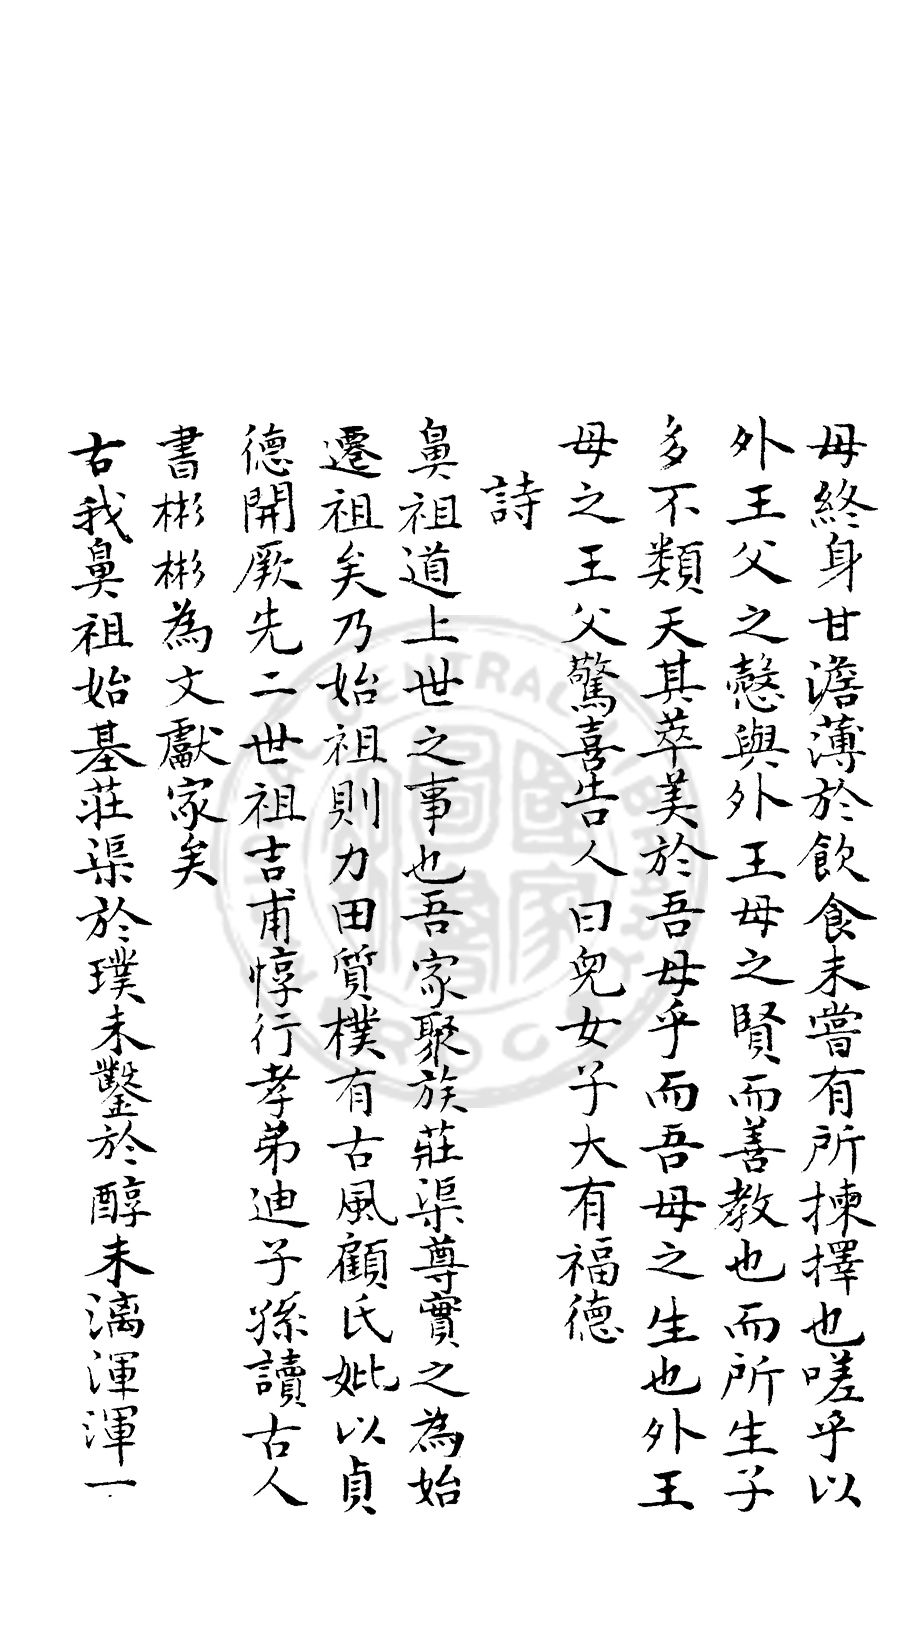 母終身甘澹薄於飲食未嘗有所揀擇也嗟乎以
外王父之愨與外王母之賢而善教也而所生子
多不類天其萃美於吾母乎而吾母之生也外王
母之王父驚喜告人曰兒女子大有福德
詩
鼻祖道上世之事也吾家聚族莊渠尊實之為始
遷祖矣乃始祖則力田質樸有古風顧氏妣以貞
德開厥先二世祖吉甫惇行孝弟迪子孫讀古人
書彬彬為文獻家矣
古我鼻祖始基莊渠於璞未鑿於醇未漓渾渾一